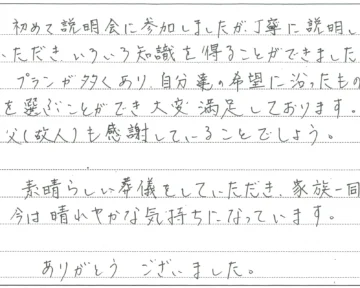 初めて説明会に参加しましたが、丁寧に説明し
いただき、いろいろ知識を得ることができました
プランが多くあり、自分達の希望に沿ったもの
を選ぶことができ大変満足しております。
父(故人)も感謝していることでしょう。
素晴らしい葬儀をしていただき、家族一同
今は晴れやかな気持ちになっています。
ありがとう ございました。